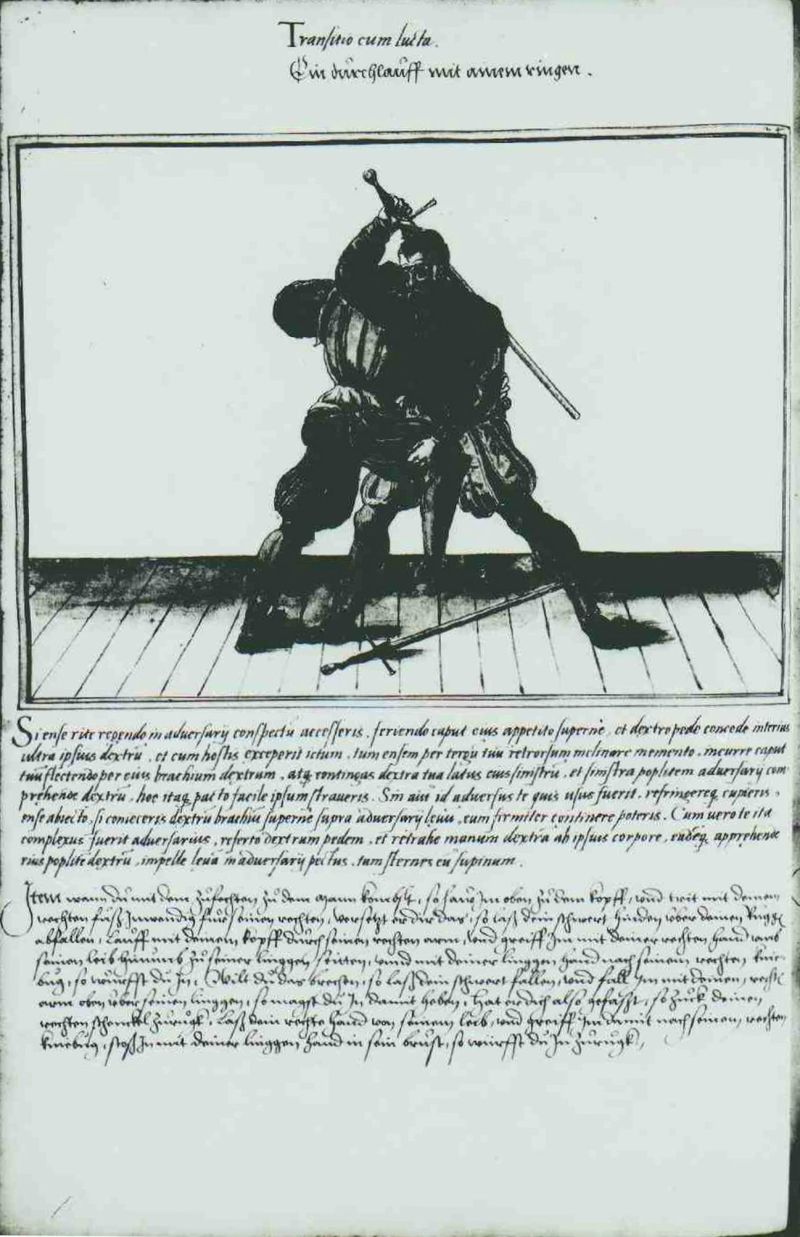 Transitio cum lucta.
Ein durchlauff mit ainem ringen.
Si ense rite regendo in adversarij conspectu accesseris, feriendo caput eius appetito superne, et dextro pede concede interius
ultra ipsius dextrũ, et cum hostis exceperit ictum, tum ensem per tergũ tuũ retrorsum inclinare memento, incurre caput
tuũ flectendo per eius brachium dextrum, atq; contingas dextra tua latus eius sinistrũ, et sinistra poplitem adversarij com
prehende dextrũ, hoc itaq; pacto facile ipsum straveris. Sin aũt id adversus te quis usus fuerit, refringereq; cupieris,
ense abiecto, si conieceris dextrũ brachiũ superne supra adversarij levũ, eum firmiter continere poteris. Cum vero te ita
complexus fuerit adversarius, referto dextrum pedem, et retrahe manum dextrã ab ipsius corpore, eadeq; apprehende
eius poplitẽ dextrũ, impelle leva in adversarij pectus, tum sternes eũ supinum.
Item wann du mit dem zufechten zu dem mann kombst, so haw Im oben zu dem kopff, und trit mit deinem
rechten fuß Inwendig fur seinen rechten, versetzt er dir das, so laß dein schwert hinden uber deinen Rugg
abfallen, lauff mit deinem kopff durch seinen rechten arm, und greiff Im mit deiner rechten hand
seinen leib hinumb zu seiner linggen seitten, und mit deiner linggen hand nach seinem rechten knie
bug, so würffst du In, Wilt du das brechen, so laß dein schwert fallen, und fall Im mit deinem recht
arm oben uber seinen linggen, so magst du In damit heben, hat er dich also gefasst, so zuck deinen
rechten schenckel zurugk, laß dein rechte hand von seinem leib, und greiff Im damit nach seinem rechten
kniebug, stoß In mit deiner linggen hand in sein brust, so würffst du In zurugk,